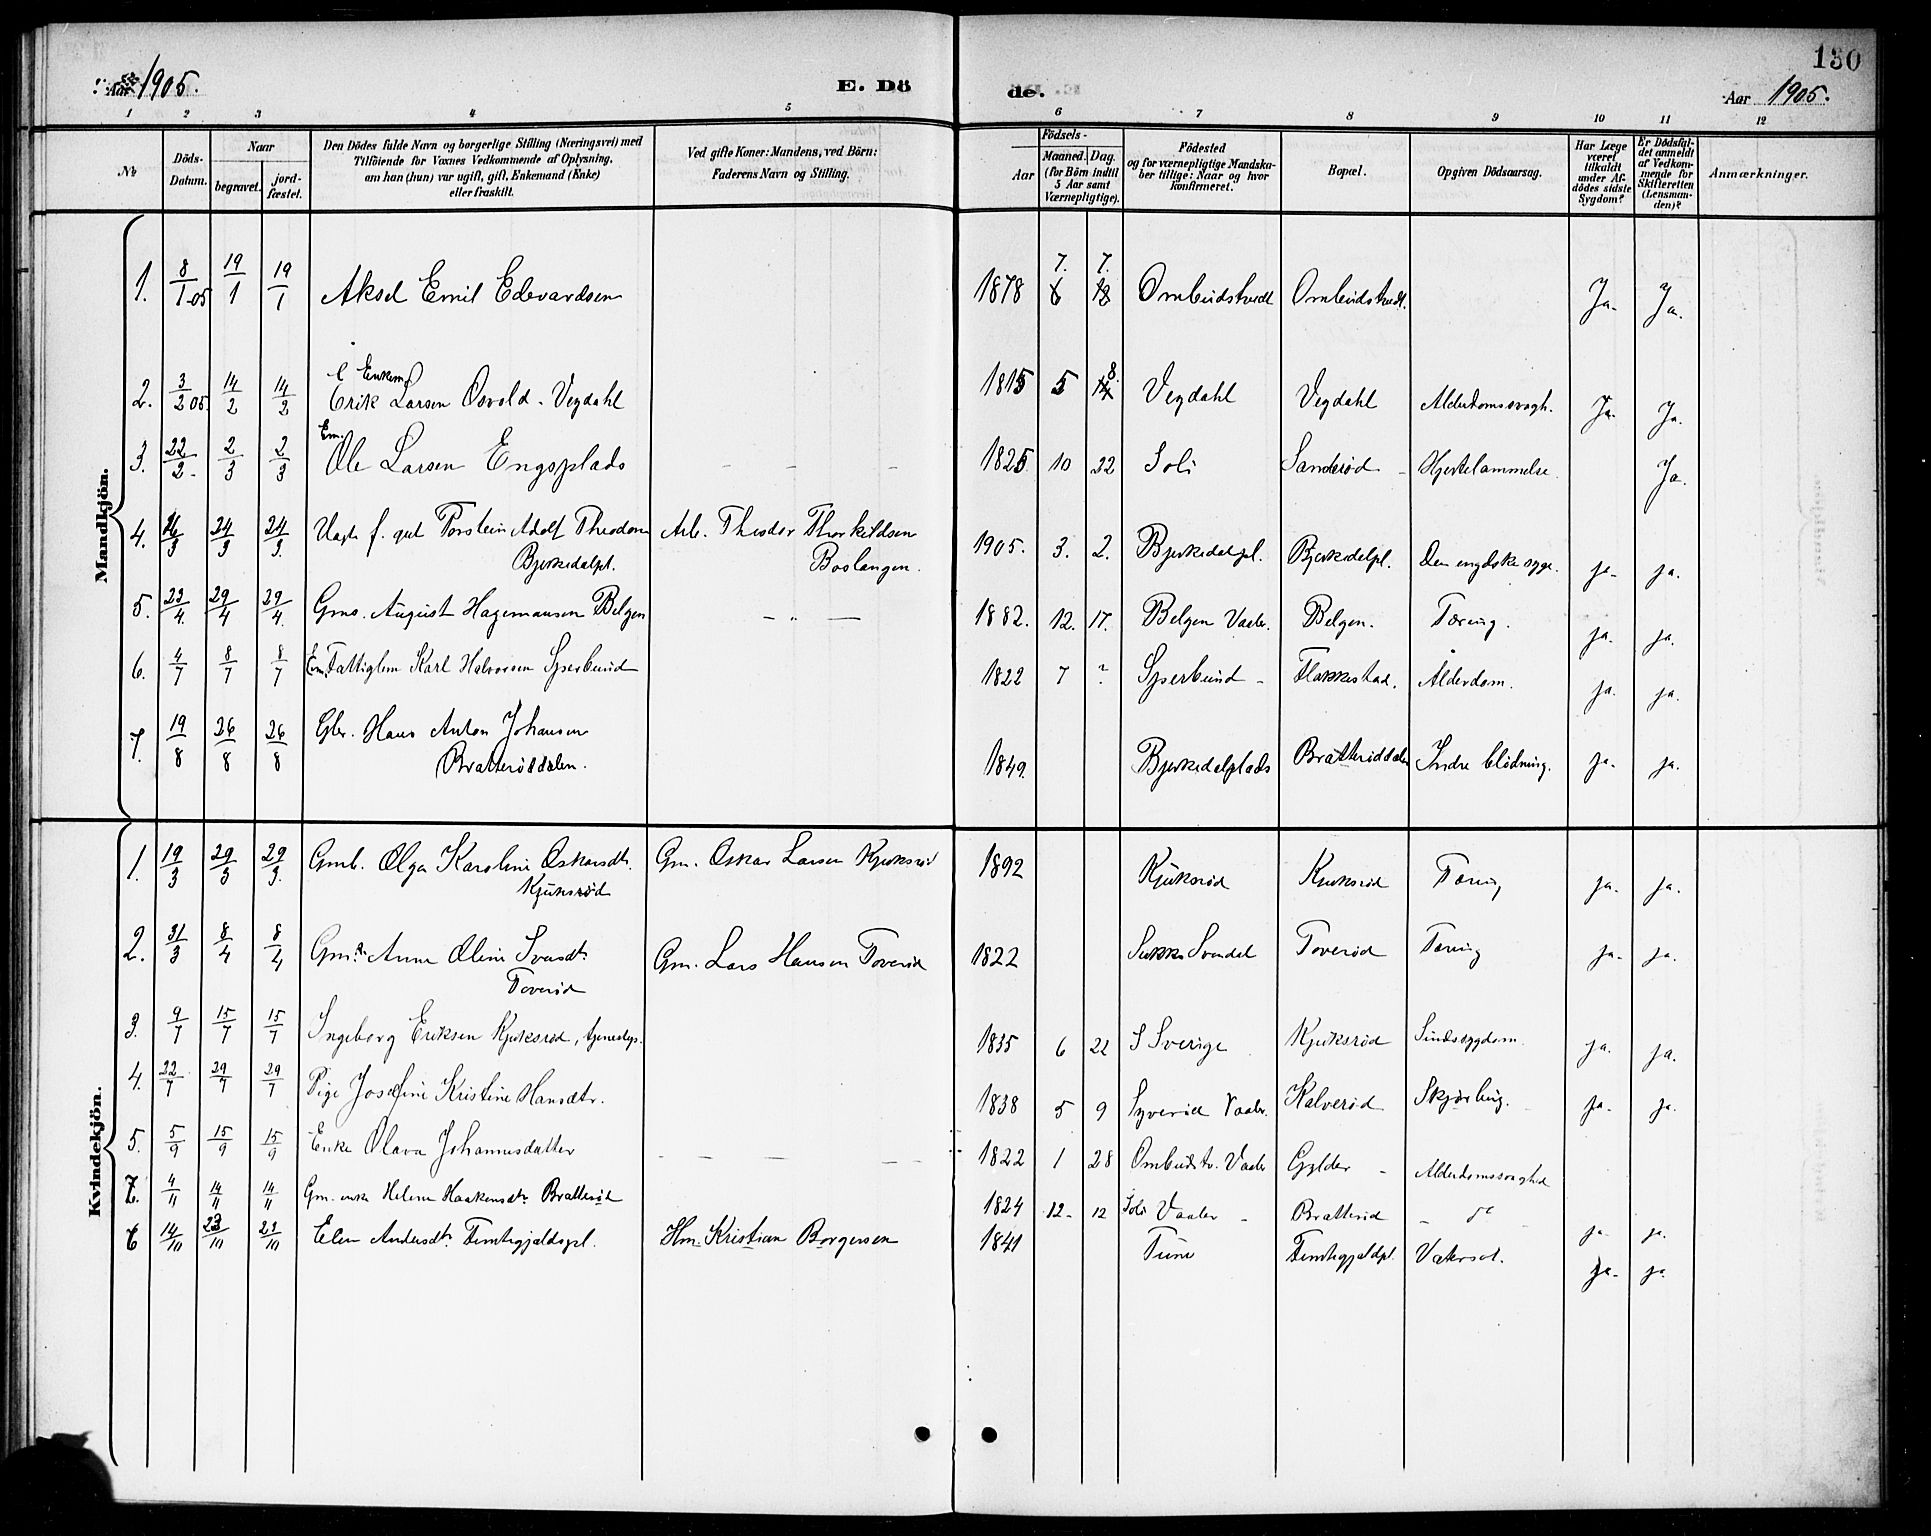 130
Aar 1905. E. Dö de. Aar 1905.
1 2 3 4 5 6 7 8 9 10 11 12
No
Döds-Datum.
Naar
begravet.
jord-fæstet.
Den Dödes fulde Navn og borgerlige Stilling (Næringsvei) med
Tilföiende for Voxnes Vedkommende af Oplysning,
om han (hun) var ugift, gift, Enkemand (Enke)
eller fraskilt.
Ved gifte Koner: Mandens, ved Börn:
Faderens Navn og Stilling.
Födsels-
Aar
Maaned. Dag.
(for Börn indtil
5 Aar samt
Værnepligtige).
Födested
og for værnepligtige Mandska-
ber tillige: Naar og hvor
konfirmeret.
Bopæl.
Opgiven Dödsaarsag.
Har Læge
været
tilkaldt
under Af-
dödes sidste
Sygdom?
Er Dödsfal-
det anmeldt
af Vedkom-
mende for
Skifteretten
(Lensman-
den)?
Anmærkninger.
Mandkjön.
1. 8/1 05 19/1 19/1 Aksel Emil Edevardsen 1878 7. 7. Ombudstvedt Ombudstvedt. Ja. Ja.
2. 3/2 05 14/2 14/2 Enkem. Erik Larsen Osvold - Vegdahl 1815 5 8. Vegdahl Vegdahl Alderdomssvagh. Ja. Ja.
3. 22/2 2/3 2/3 Em. Ole Larsen Engsplads - - - 1825 10 22 Soli Sanderød - Hjertelammelse. Ja.
4. 16/3 24/3 24/3 Ugt f. gut Torstein Adolf Theodorsen Arb. Theodor Thorkildsen 1905. 3. 2. Bjerkedalpl. Bjerkedalpl. Den engelske syge. ja. ja.
Bjerkedalpl. Boslangen.
5. 23/4 29/4 29/4 Gms. August Hagemansen Belgen - " - 1882. 12. 17. Belgen Vaaler. Belgen. Tæring. ja. ja.
6. 4/7 8/7 8/7 Em. Fattiglem Karl Halvorsen Sperbund 1822 7 ? Sperbund - Flakkestad. Alderdom. ja. ja.
7. 19/8 26/8 26/8 Gbr. Hans Anton Johansen
Bratterøddalen. 1849. Bjerkedalplads Bratterøddalen Indre blödning. ja. ja.
Kvindekjön.
1. 19/3 29/3 29/3 Gmb. Olga Karoline Oskarsdtr. Gm. Oskar Larsen Kjuksrød 1892 Kjuksrød Kjuksrød Tæring ja. ja.
Kjuksrød
2. 31/3 8/4 8/4 Gm. Anne Oline Svensdtr. Gm. Lars Hansen Toverød 1822 Svendal Toverød Tæring ja. ja.
Toverød
3. 9/7 15/7 15/7 Ingeborg Eriksen Kjuksrød, tjenestep. 1835 6 22 I Sverige Kjuksrød Sindssygdom. ja. ja.
4. 22/7 29/7 29/7 Pige Josefine Kristine Hansdtr. 1838 5 9 Syverød Vaaler. Kalverød Skjørling. ja. ja.
5. 5/9 15/9 15/9 Enke Olava Johannesdatter - - - - 1822 1 28 Ombudstv. Vaaler Gylder - Alderdomssvaghed
7. 4/11 14/11 14/11 Gm. enke Helene Haakensdtr. Bratterød 1824 12 - 12 Soli Vaaler - Bratterød - do ja. ja.
6 14/10 23/10 22/10 Elen Andersdtr. Femtegjeldspl. Hm. Kristian Borgersen 1841 Tune Femtegjeldpl. Vatersot. ja. ja.